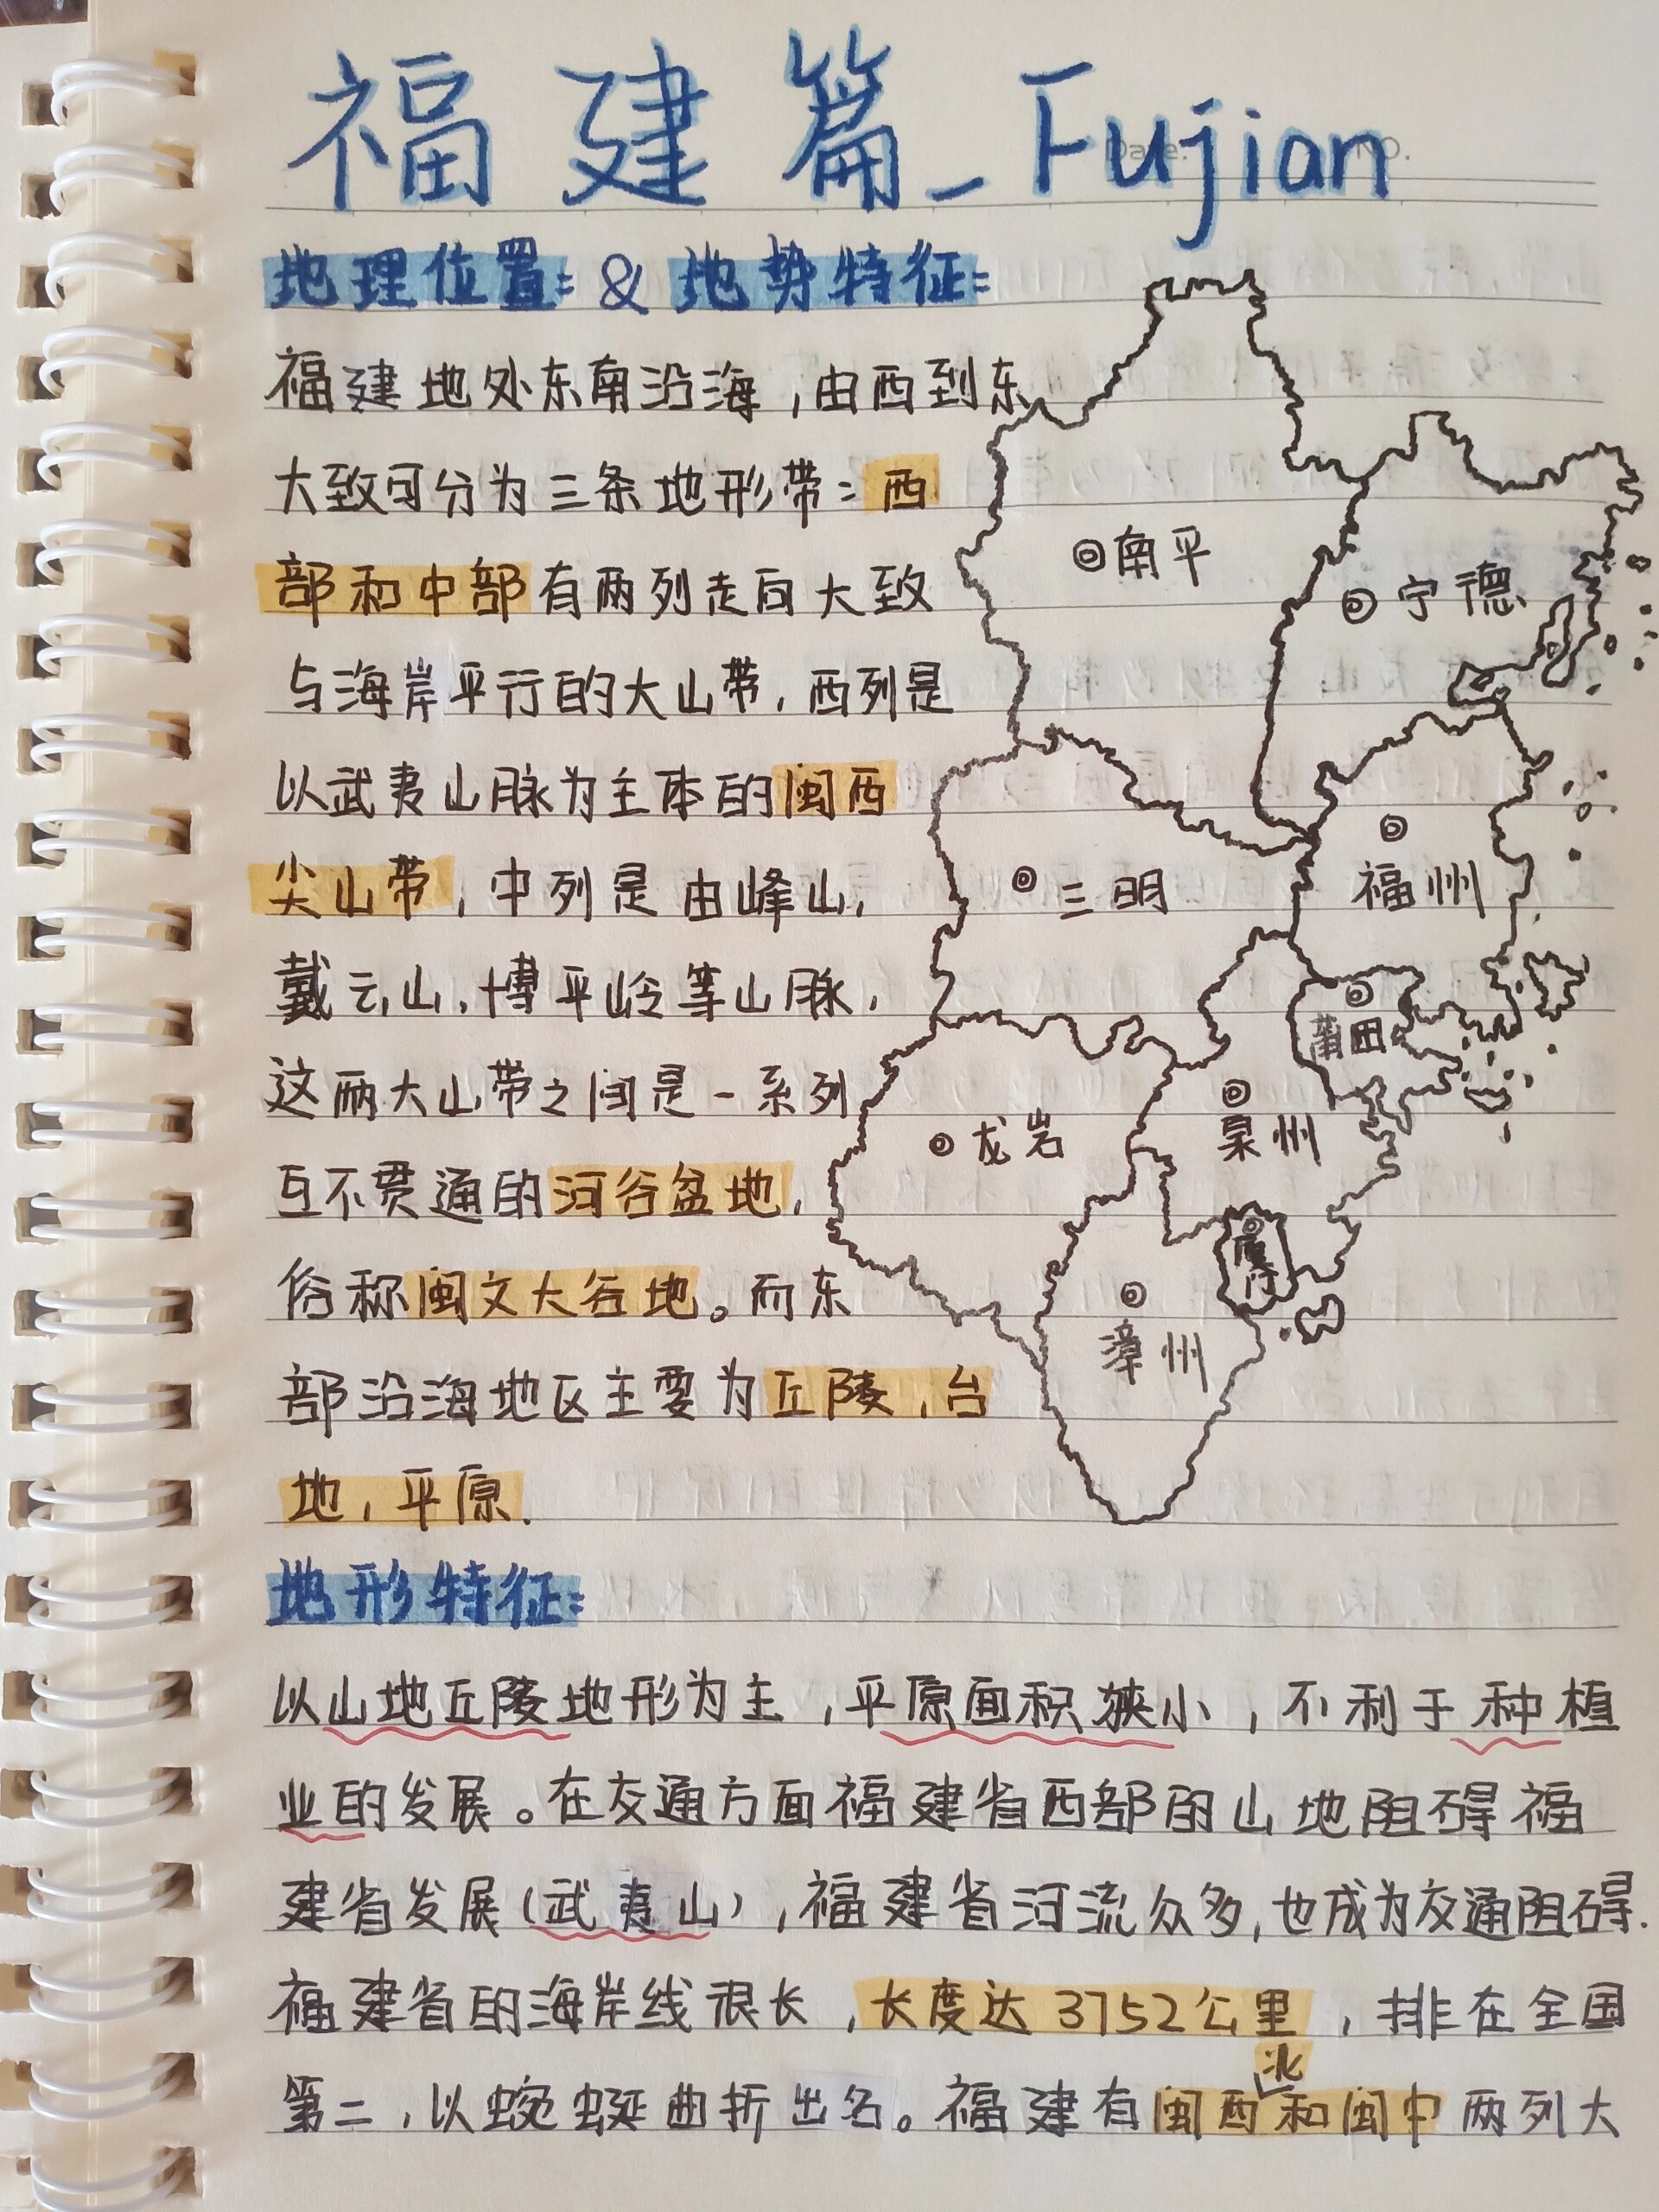 福建篇_Fujian
Date.
NO.
地理位置: & 地势特征:
福建地处东南沿海,由西到东
大致可分为三条地形带:西
部和中部有两列走向大致
与海岸平行的大山带,西列是
以武夷山脉为主体的闽西
尖山带,中列是由峰山,
戴云山,博平岭等山脉,
这两大山带之间是一系列
互不贯通的河谷盆地,
俗称闽文大谷地。而东
部沿海地区主要为丘陵,台
地,平原.
南平
宁德
三明
福州
莆田
龙岩
泉州
厦门
漳州
地形特征:
以山地丘陵地形为主,平原面积狭小,不利于种植
业的发展。在交通方面福建省西部的山地阻碍福
建省发展(武夷山),福建省河流众多,也成为交通阻碍.
福建省的海岸线很长,长度达3752公里,排在全国
第二,以蜿蜒曲折出名。福建有闽西北和闽中两列大